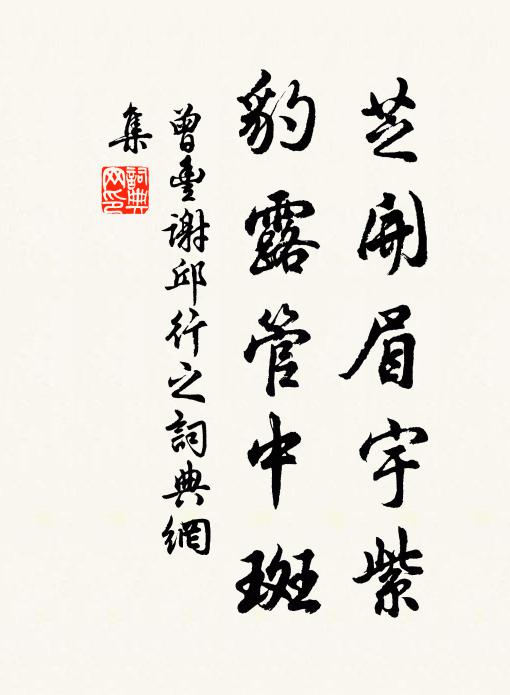 芝開眉宇紫
豹露管中斑
曾豊謝邱行之詞典網
集
詞典
网印